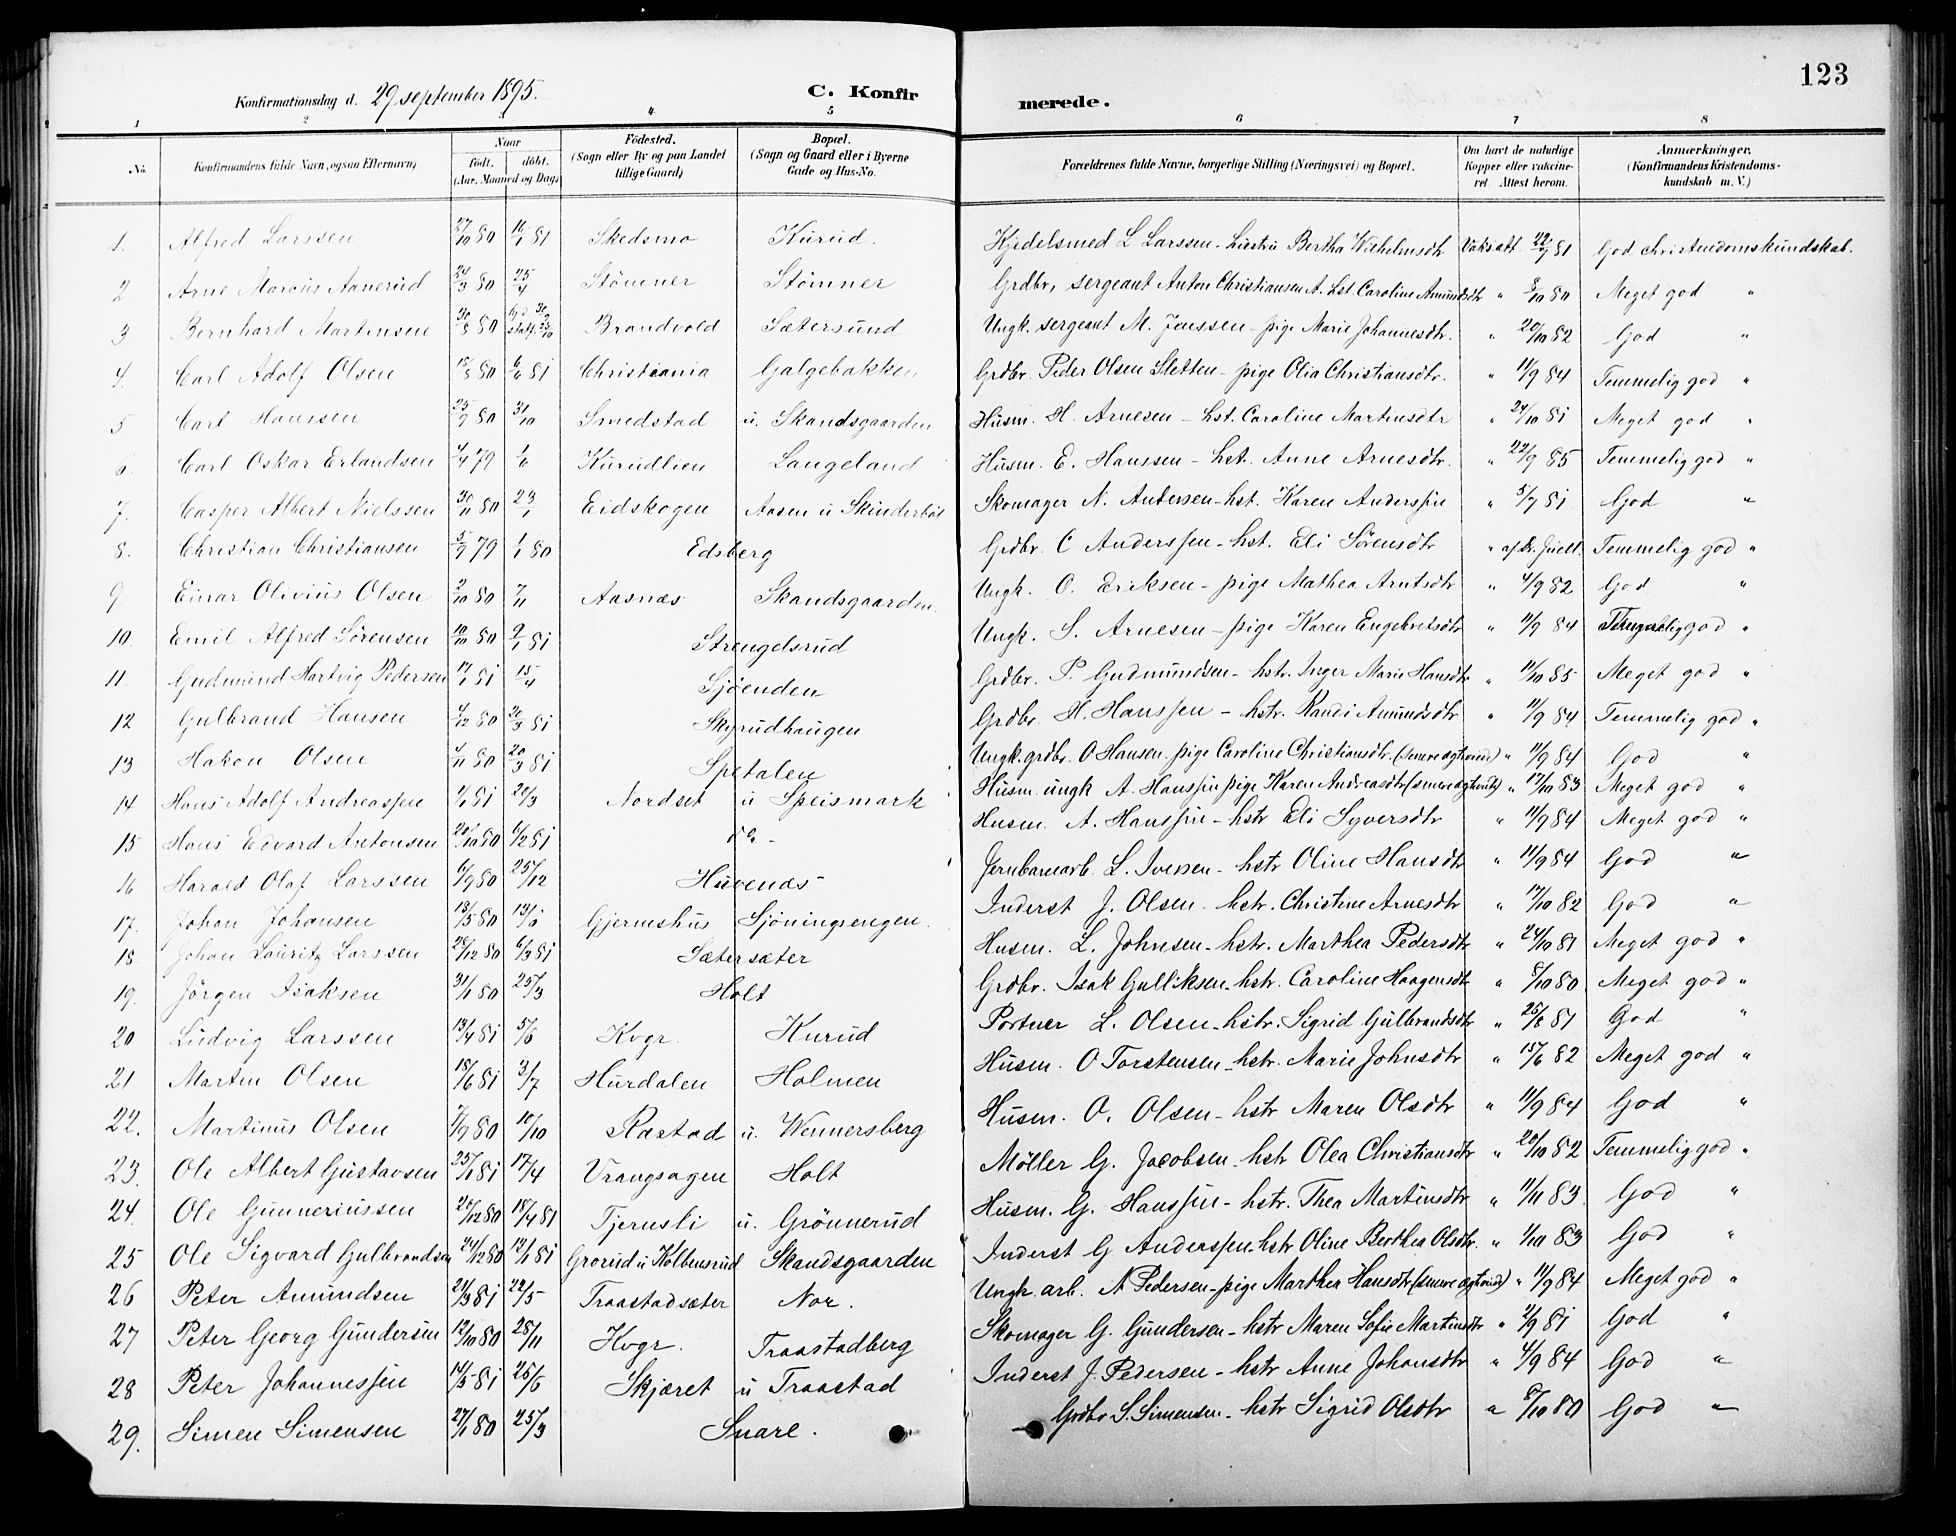 123
Konfirmationsdag d. 29 september 1895.
C. Konfirmerede.
1 2 3 4 5 6 7 8
No. Konfirmandens fulde Navn, ogsaa Efternavn) Naar født. døbt. (Aar, Maaned og Dag) Fødested. (Sogn eller By og paa Landet tillige Gaard) Bopæl. (Sogn og Gaard eller i Byerne Gade og Hus-No. Forældrenes fulde Navne, borgerlige Stilling (Næringsvei) og Bopæl. Om havt de naturlige Kopper eller vakcineret. Attest herom. Anmærkninger. (Konfirmandens Kristendomskundskab m. V.)
1. Alfred Larssen 27/10 80 16/1 81 Skedsmo Kurud. Kjedelsmed L Larssen - hustru Bertha Wilhelmsdtr Vaksatt 22/9 81 God christendomskundskab.
2 Arne Marcius Aanerud 24/3 80 25/4 Stømner Stømner Grdbr, sergeant Anton Christiansen A. hst. Caroline Amundsdtr " 8/10 80 Meget god "
3 Bernhard Martinsen 30/8 80 Brandvold Sætersund Ungk. sergeant M. Jenssen - pige Marie Johannesdtr. " 20/10 82 God "
4. Carl Adolf Olsen 15/3 80 6/6 81 Christiania Galgebakken Grdbr. Peder Olsen Sletten - pige Olia Christiansdtr. " 11/9 84 Temmelig god "
5 Carl Hanssen 25/9 80 31/10 Smedstad u. Skandsgaarden Husm. H. Arnesen - hst. Caroline Martinsdtr " 24/10 81 Meget god "
6. Carl Oskar Erlandsen 4/4 79 1/6 Kurudlien Langeland Husm. E. Hanssen - hst. Anne Arnesdtr. " 22/9 85 Temmelig god "
7. Casper Albert Nielssen 30/11 80 23/1 Eidskogen Aasen u Skinderbøl Skomager N. Andersen - hst. Karen Anderssen " 5/7 81 God "
8. Christian Christiansen 5/9 79 1/1 80 Edsberg Grdbr. C Anderssen - hst. Eli Sørensdtr " af Dr. Juell. Temmelig god "
9 Einar Olivius Olsen 2/10 80 7/11 Aasnæs Skandsgaarden. Ungk. O. Eriksen - pige Mathea Arntsdtr " 4/9 82 God "
10. Emil Alfred Sørensen 10/10 80 9/1 81 Strengelsrud Ungk. S. Arnesen - pige Karen Engebretsdtr " 11/9 84 Temmelig god "
11. Gudmund Hartvig Pedersen 17/1 81 15/4 Sjøenden Grdbr. P. Gudmundsen - hstr. Inger Marie Hansdtr " 11/10 85 Meget god "
12 Gulbrand Hansen 4/12 80 20/3 81 Skyrudhaugen Grdbr. H. Hanssen - hstr. Randi Amundsdtr " 11/9 84 Temmelig god "
13 Hakon Olsen 4/11 80 20/3 81 Spetalen Ungk. grdbr. O Hansen. pige Caroline Christiansdtr. (senere ægtevied) " 11/9 84 God "
14 Hans Adolf Andreassen 1/1 81 20/3 Nordset u Speismark Husm. ungk A. Hanssen pige Karen Andreasdtr (senere ægtevite) " 17/10 83 Meget god "
15 Hans Edvard Antonsen 20/10 80 6/2 81 do - Husm. A. Hanssen - hstr Eli Syversdtr " 11/9 84 Meget god "
16 Harald Olaf Larssen 6/9 80 25/12 Huvenæs Jernbanearb. L. Iversen - hstr Oline Hansdtr " 11/9 84 God "
17. Johan Johansen 18/5 80 Gjermshus Sjøningsengen. Inderst J. Olsen - hstr. Christine Arnesdtr " 17/10 82 God "
18. Johan Lauritz Larssen 28/12 80 6/3 81 Sætersæter Husm. L. Johnsen - hstr. Marthea Pedersdtr " 24/10 81 Meget god "
19. Jørgen Isaksen 31/1 80 25/3 Holt Grdbr. Isak Gulliksen - hstr. Caroline Haagensdtr " 8/10 80 Meget god "
20 Ludvig Larssen 13/4 81 5/6 Kvgr. Kurud Portner L. Olsen - hstr. Sigrid Gulbrandsdtr " 25/8 81 God "
21 Martin Olsen 18/6 81 3/7 Hurdalen Holmen Husm. O Torstensen - hstr. Marie Johnsdtr " 15/6 82 Meget god "
22. Martinus Olsen 7/9 80 10/10 Rastad u. Wennersberg Husm. O. Olsen - hstr Maren Olsdtr " 11/9 84 God "
23. Ole Albert Gustavsen 25/1 81 17/4 Vrangsagen Holt Møller G. Jacobsen - hstr Olea Christiansdtr " 20/10 82 Temmelig god "
24. Ole Gunneriussen 26/12 80 18/4 81 Tjernsli u. Grønnerud Husm. G. Hanssen - hstr. Thea Martinsdtr " 11/11 83. God "
25 Ole Sigvard Gulbrandsen 24/12 80 12/1 81 Grorud u Kolbensrud Skandsgaarden Inderst G Anderssen - hstr Oline Berthea Olsdtr. " 1/10 83 God "
26 Peter Amundsen 21/3 81 22/5 Traastadsæter Nor. Ungk. arb. A Pedersen - pige Marthea Hansdtr (senere ægtevied) " 11/9 84 Meget god "
27 Peter Georg Gundersen 12/10 80 28/11 Kvgr. Traastadberg Skomager G. Gundersen - hstr Maren Sofie Martinsdtr " 2/9 81 God "
28 Peter Johannessen 14/5 81 26/6 Skjæret u Traastad Inderst J. Pedersen - hstr Anne Johansdtr " 4/9 84 God "
29. Simen Simensen 27/1 80 25/3 Snare. Grdbr S. Simensen - hstr Sigrid Olsdtr " 8/10 80 God "